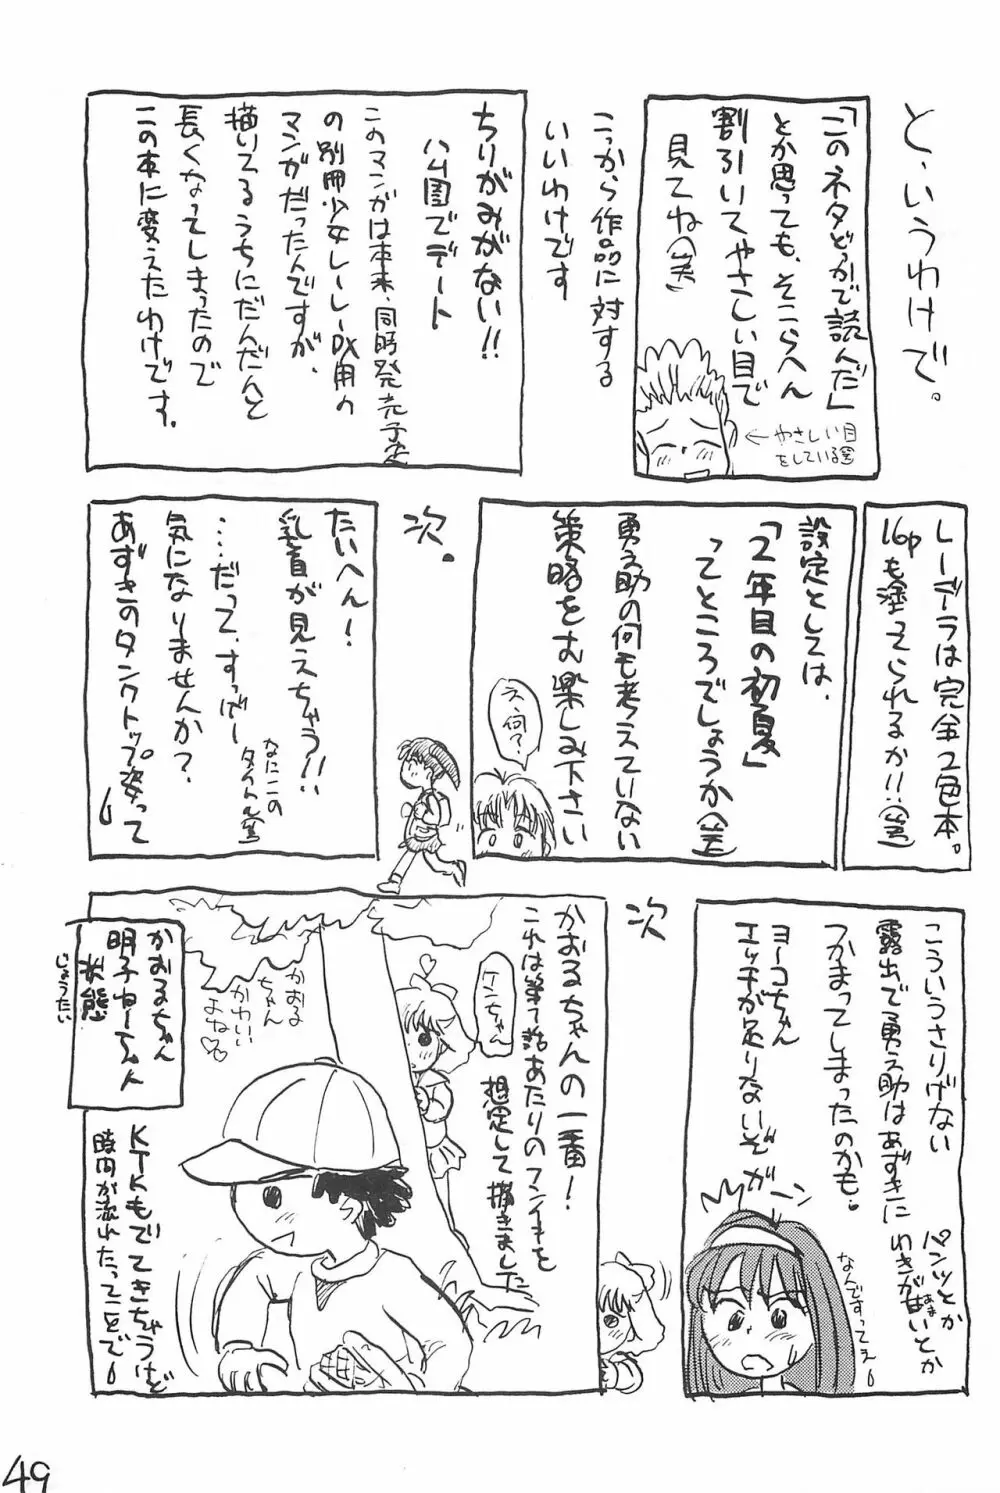 と、いうわけで。
「このネタどっかで読んだ」
とか思っても、そこらへん
割引いてやさしい目で
見てね(笑)
←やさしい目
をしている(笑)
こっから作品に対する
いいわけです
ちりがみがない!!
ハム園でデート
このマンガは本来、同時発売予定
の別冊少女レーレーDX用の
マンガだったんですが、
描いてるうちにだんだんと
長くなってしまったので
この本に変えたわけです。
レーデラは完全2色本。
16pも塗ってられるか!!(笑)
設定としては、
「2年目の初夏」
ってところでしょうか(笑)
勇之助の何も考えていない
策略をお楽しみ下さい
え、何?
次。
たいへん!
乳首が見えちゃう!!
なにこの
タイトル(笑)
…だって、すっげー
気になりませんか?
あずきのタンクトップ姿って
こういうさりげない
パンツとか
わきが甘いとか
あま
露出で勇之助はあずきに
つかまってしまったのかも。
ヨーコちゃん
エッチが足りないぞ
ガーン
なんですってぇ
次
かおるちゃんの一番!
これは第て話あたりのフンイキを
想定して描きました
ケンちゃん
かおる
ちゃん
かわいい
よね♡
かおるちゃん
明子ねーちゃん
状態
じょうたい
KTKもでてきちゃうけど
時間が流れたってことで
49